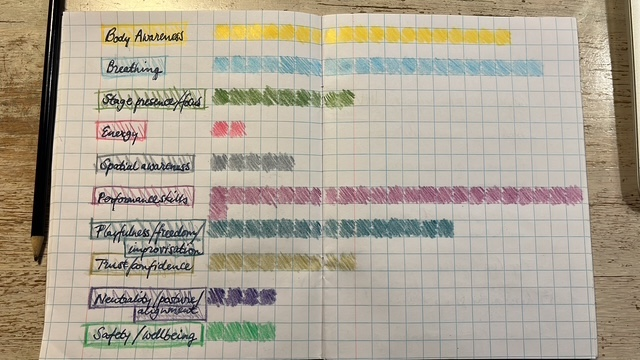 Body Awareness
Breathing
Stage presence/focus
Energy
Spatial awareness
Performance skills
Playfulness/freedom/
improvisation
Trust/confidence
Neutrality/posture/
alignment
Safety/wellbeing